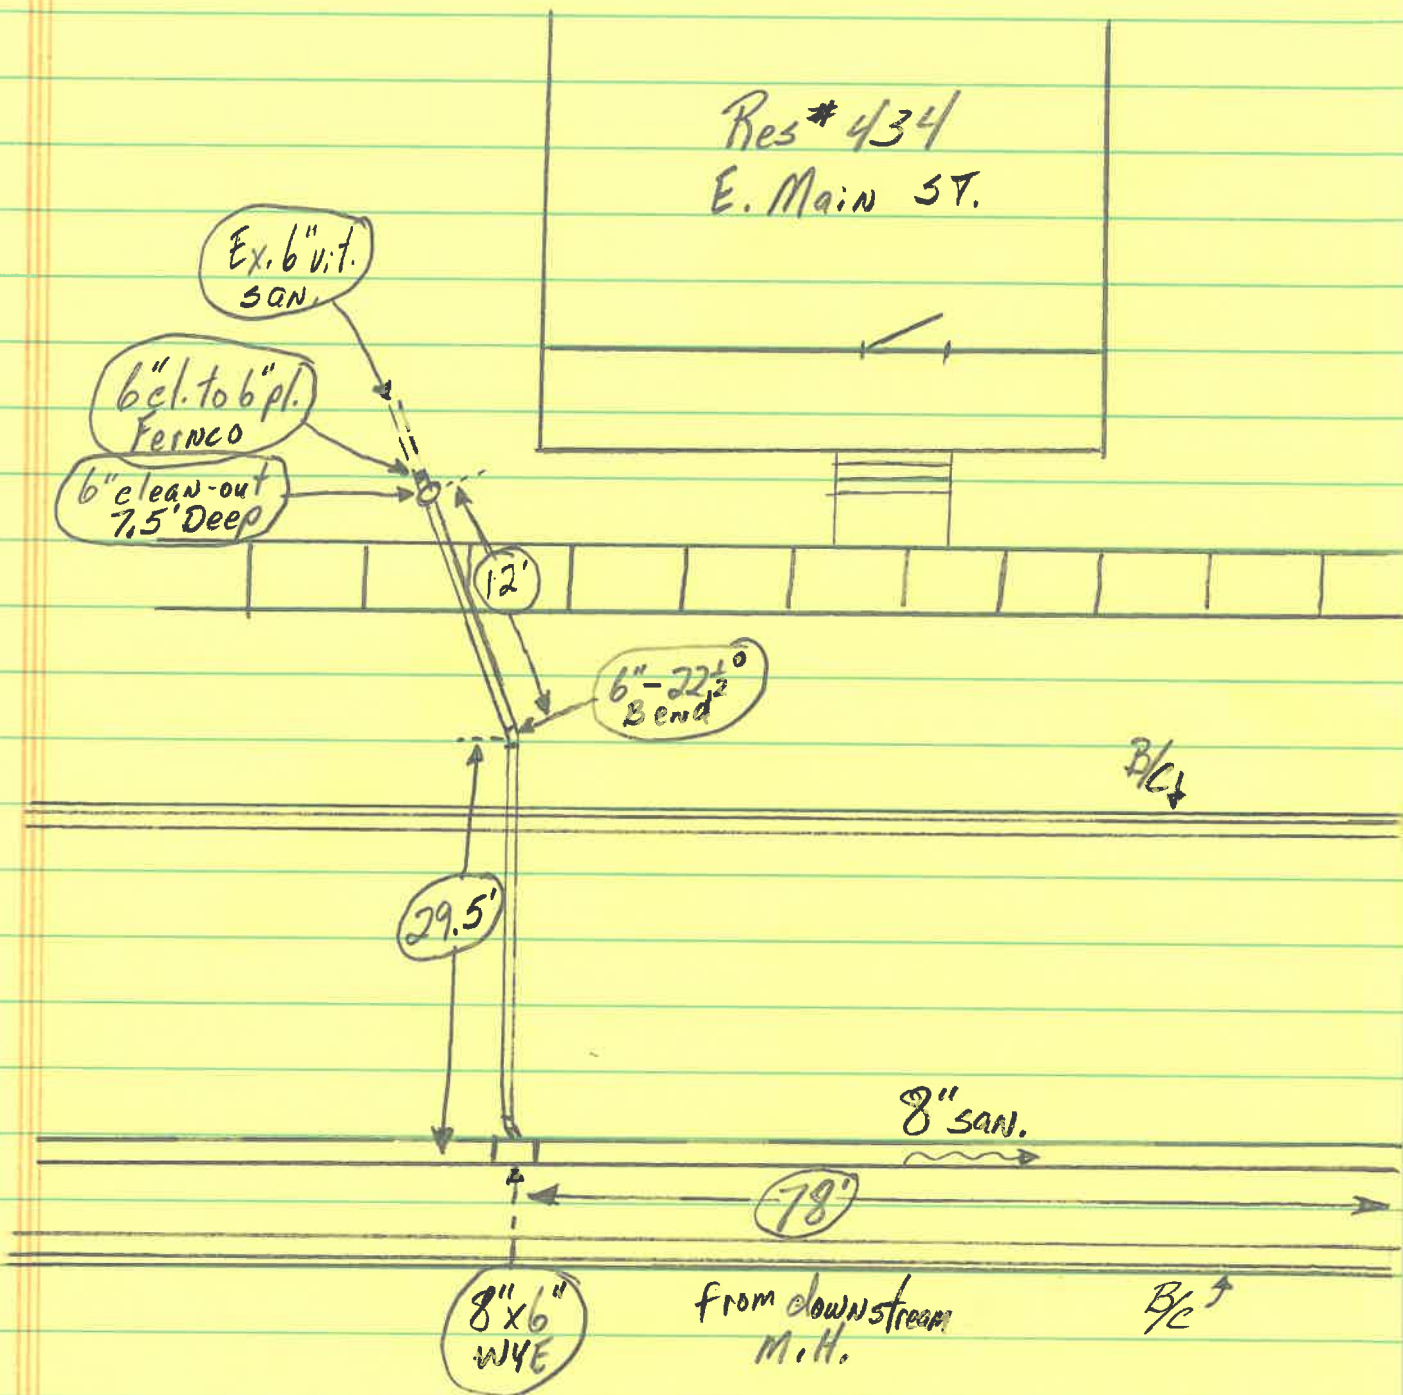 Res # 434
E. Main ST.
Ex. 6" vit.
san.
6" cl. to 6" pl.
Fernco
6" clean-out
7.5' Deep
12'
6" - 22 1/2°
Bend
B/C
29.5'
8" san.
78'
8" x 6"
WYE
from downstream
M.H.
B/C